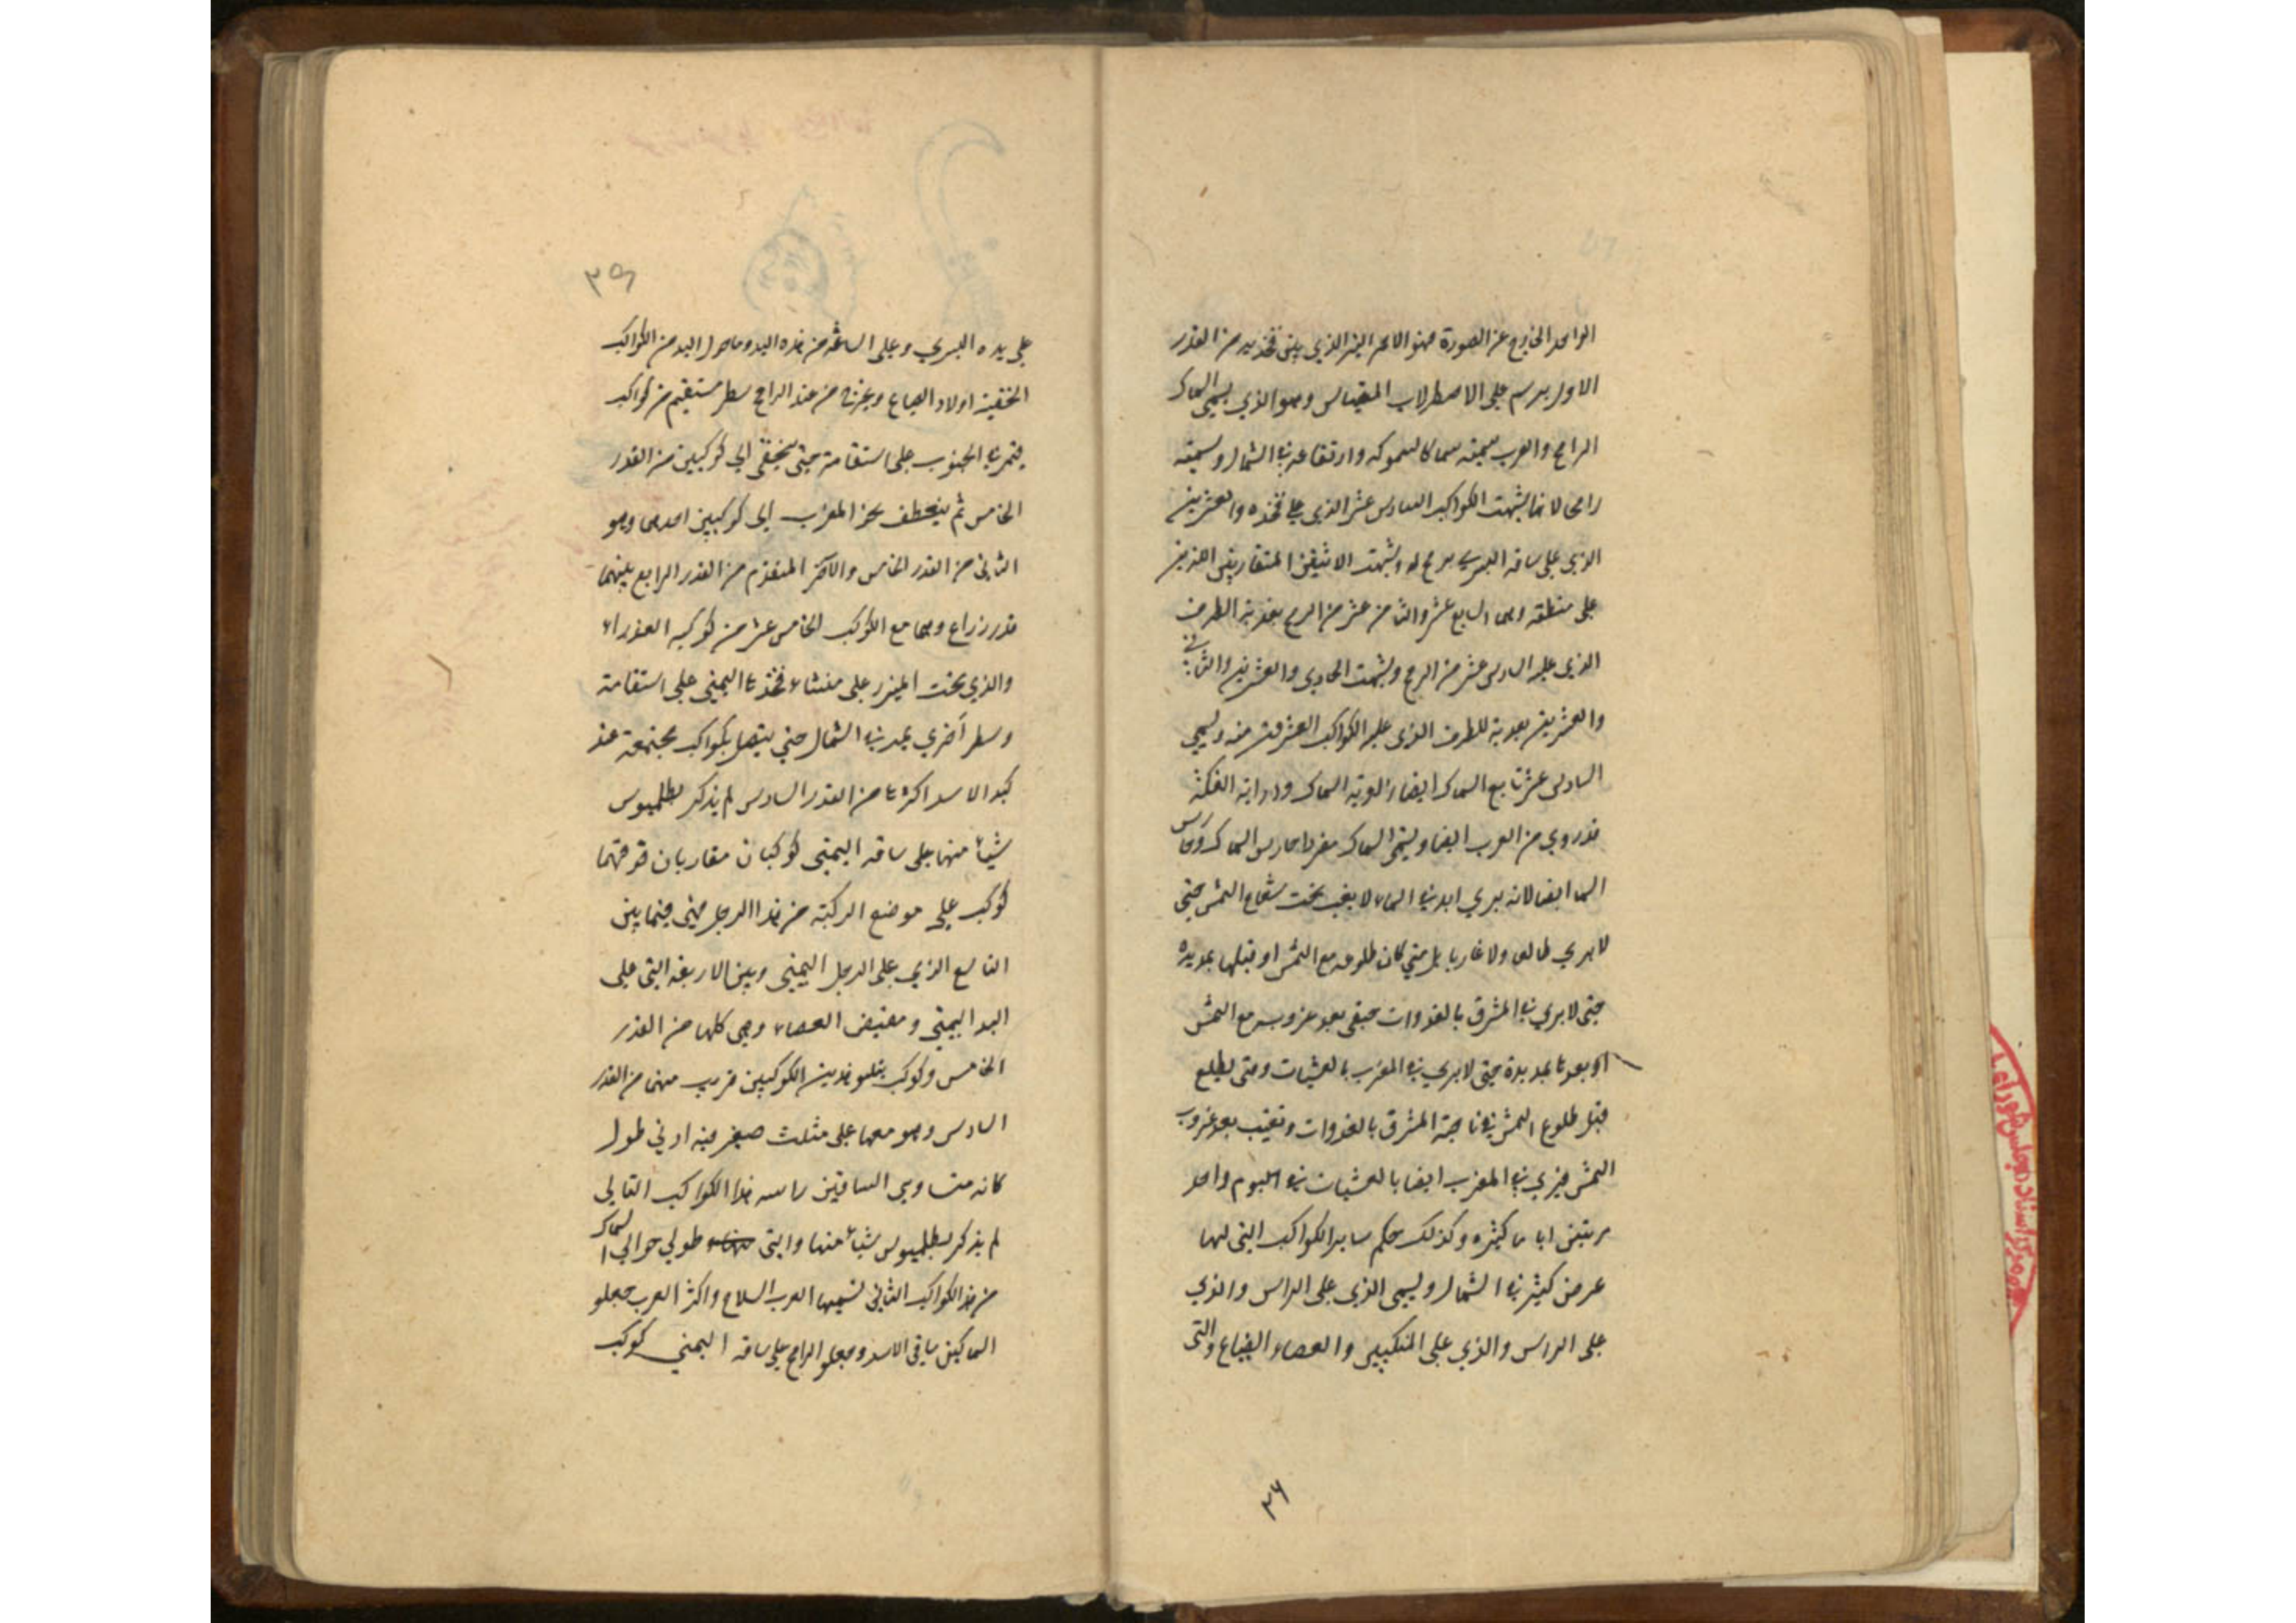 الواحد الخارج عن الصورة فهو الاحمر النير الذي بين فخذيه من القدر
الاول يرسم على الاصطرلاب المقياس وهو الذي يسمى السماك
الرامح والعرب سمته سماكا لسموكه وارتفاعه في الشمال وسمته
رامحا لانها شبهت الكواكب السادس عشر الذي على فخذه والعشرين
الذي على ساقه اليسرى برمح له وشبهت الاثنين المتقاربين اللذين
على منطقته وهما السابع عشر والثامن عشر من الرمح بعذبة الطرف
الذي عليه السادس عشر من الرمح وشبهت الحادي والعشرين والثاني
والعشرين بعذبة للطرف الذي عليه الكواكب العشرون منه ويسمى
السادس عشر تابع السماك ايضا راية السماك وراية الفكة
قد روي من العرب ايضا ويسمى السماك مفردا حارس السماك وحارس
السما ايضا لانه يرى ابدا في السماء لا يغيب تحت شعاع الشمس حتى
لا يرى طالعا ولا غاربا بل متى كان طلوعه مع الشمس او قبلها بمديدة
حتى لا يرى في المشرق بالغدوات حتى بعد غروبه مع الشمس
او بعدها بمديدة حتى لا يرى في المغرب بالعشيات ومتى يطلع
قبل طلوع الشمس في ناحية المشرق بالغدوات وتغيب بعد غروب
الشمس فيرى في المغرب ايضا بالعشيات في اليوم واحد
مرتين اياما كثيره وكذلك حكم ساير الكواكب التي لها
عرض كثير في الشمال ويسمى الذي على الراس والذي
على الراس والذي على المنكبين والعصاء الضباع والتي
٢٦
٣٥
على يده اليسرى وعلى الساعد من هذه اليد وما حول اليد من الكواكب
الخفية اولاد الضباع ويخرج من عند الرامح سطر مستقيم من كواكب
فتمر في الجنوب على استقامة حتى ينتهي الى كوكبين من القدر
الخامس ثم ينعطف نحو المغرب الى كوكبين احدهما وهو
الثاني من القدر الخامس والآخر المتقدم من القدر الرابع بينهما
قدر ذراع وهما مع الكواكب الخامس عشر من كوكبة العذراء
والذي تحت الميزر على منشاء فخذها اليمنى على استقامة
وسطر آخر يمد في الشمال حتى يتصل بكواكب مجتمعة عند
كبد الاسد اكثرها من القدر السادس لم يذكر بطلميوس
شيئا منها على ساقه اليمنى كوكبان متقاربان فوقهما
كوكب على موضع الركبة من هذا الرجل فهي فيما بين
التاسع الذي على الرجل اليمنى وبين الاربعة التي على
اليد اليمنى ومقبض العصاء وهي كلها من القدر
الخامس وكوكب يتلو هذين الكوكبين قريب منهما من القدر
السادس وهو معهما على مثلث صغير فيه ادنى طول
كانه متساوي الساقين راسه هذا الكواكب التالي
لم يذكر بطلميوس شيئا منها والتي طولي حوالي السماك
من هذا الكواكب الثاني تسميها العرب السلاح واكثر العرب جعلو
السماكين ساقي الاسد وجعلو الرامح على ساقه اليمنى كوكب